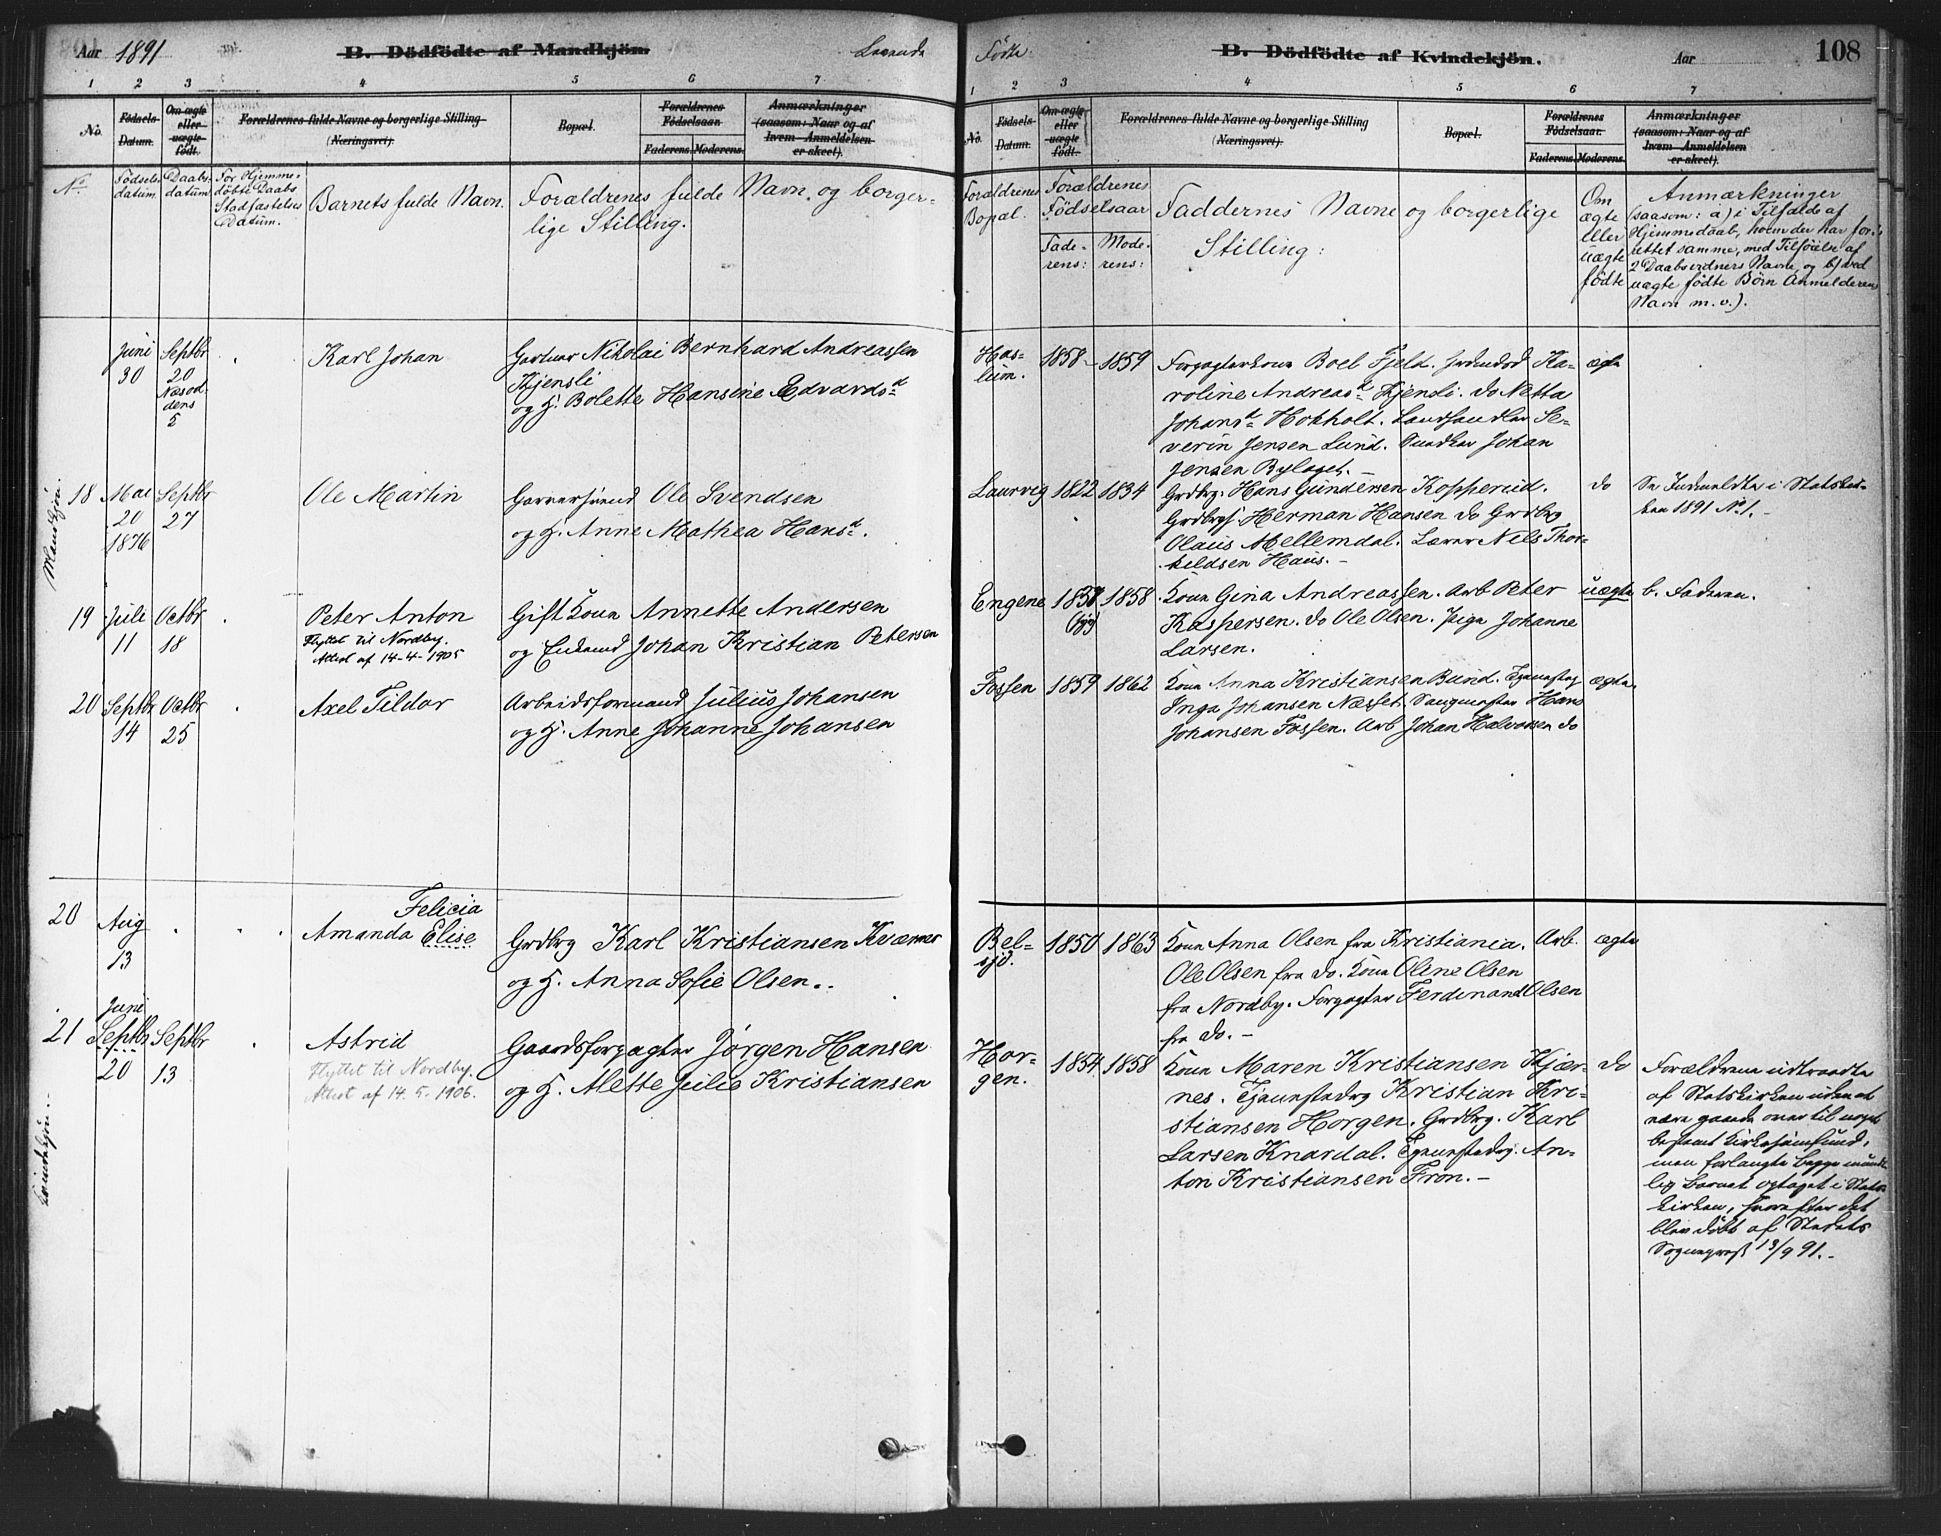 Aar 1891 B. Dödfödte af Mandkjön. Levende
1 2 3 4 5 6 7
No. Födsels-Datum. Om ægte eller uægte födt. Forældrenes fulde Navne og borgerlige Stilling (Næringsvei). Bopæl. Forældrenes Födselsaar. Faderens. Moderens. Anmærkninger (saasom: Naar og af hvem Anmeldelsen er skeet).
No. Födsels datum Daabs datum For Hjemme-döbte Daabs Stadfæstelses Datum. Barnets fulde Navn. Forældrenes fulde Navn og borger-
lige Stilling.
Juni 30 Septbr 20 Næsod-dens 5 Karl Johan
Gartner Nikolai Bernhard Andreassen
Kjensli
og H. Bolette Hansine Edvardsd.
Mandkjön.
18 Mai 20 1876 Septbr 27 Ole Martin
Garversvend Ole Svendsen
og H. Anne Mathea Hansd.
19 Juli 11 Octbr 18 Peter Anton
Flyttet til Nordby.
Attest af 14-4-1905
Gift Kone Annette Andersen
og Enkemd Johan Kristian Petersen
20 Septbr 14 Octbr 25 Axel Tildor
Arbeidsformand Julius Johansen
og H. Anne Johanne Johansen
20 Aug 13 Felicia
Amanda Elise
Grdbrg Karl Kristiansen Kværner
og H. Anna Sofie Olsen.
21 Juni Septbr 20 Septbr 13 Astrid
Flyttet til Nordby.
Attest af 14.5.1906.
Gaardsforpagter Jørgen Hansen
og H. Alette Julie Kristiansen
Kvindekjön.
Födte B. Dödfödte af Kvindekjön. Aar 108
1 2 3 4 5 6 7
No. Födsels-Datum. Om ægte eller uægte födt. Forældrenes fulde Navne og borgerlige Stilling (Næringsvei). Bopæl. Forældrenes Födselsaar. Faderens. Moderens. Anmærkninger (saasom: Naar og af hvem Anmeldelsen er skeet).
Forældrenes Bopæl. Forældrenes Födselsaar Fade-rens: Mode-rens:
Faddernes Navne og borgerlige
Stilling:
Om ægte eller uægte födte
Anmærkninger
(saasom: a) i Tilfælde af
Hjemmedaab, hvem der har for-
rettet samme, med Tilföielse af
2 Daabsvidners Navne, og b) ved
uægte födte Börn Anmelderens
Navn m.v.).
Has-lum. 1858 1859 Forpagterkone Boel Fjeld. Jordmod Ka- ægte
roline Andreasd. Kjensli. do Netta
Johansd. Hokholt. Landhandler Se-
verin Jensen Lund. Snedker Johan
Jensen Bylaget.
Laurvig 1822 1834 Grdbrg. Hans Gundersen Kopperud. do Se Indmeldte i Statskir-
ken 1891 No 1.
Grdbrg. Herman Hansen do Grdbrg
Olaus Mellemdal. Lærer Nils Thor-
kildsen Haus.
Engene 1857 1858 Kone Gina Andreassen. Arb Peter uægte b. Faderen.
Kaspersen. do Ole Olsen. Pige Johanne
Larsen.
Fossen 1859 1862 Kone Anna Kristiansen Bund. Tjenestpg ægte
Inga Johansen Næsset. Saugmester Hans
Johansen Fossen. Arb Johan Halvorsen do
Bel-sjö. 1850 1863 Kone Anna Olsen fra Kristiania. Arb. ægte
Ole Olsen fra do. Kone Oline Olsen
fra Nordby. Forpagter Ferdinand Olsen
fra do.
Hor-gen. 1854 1858 Kone Maren Kristiansen Kjær- do
nes. Tjenestedrg Kristian Kri-
stiansen Horgen. Grdbrg. Karl
Larsen Knardal. Tjenstedrg. An-
ton Kristiansen Fron.
Forældrene udtraadte
af Statskirken uden at
være gaaede over til noget
bestemt Kirkesamfund,
men forlangte begge mundt
lig Barnet optaget i Stats
kirken, hvorefter det
blev döbt af Stedets
Sogneprest 13/9 91.